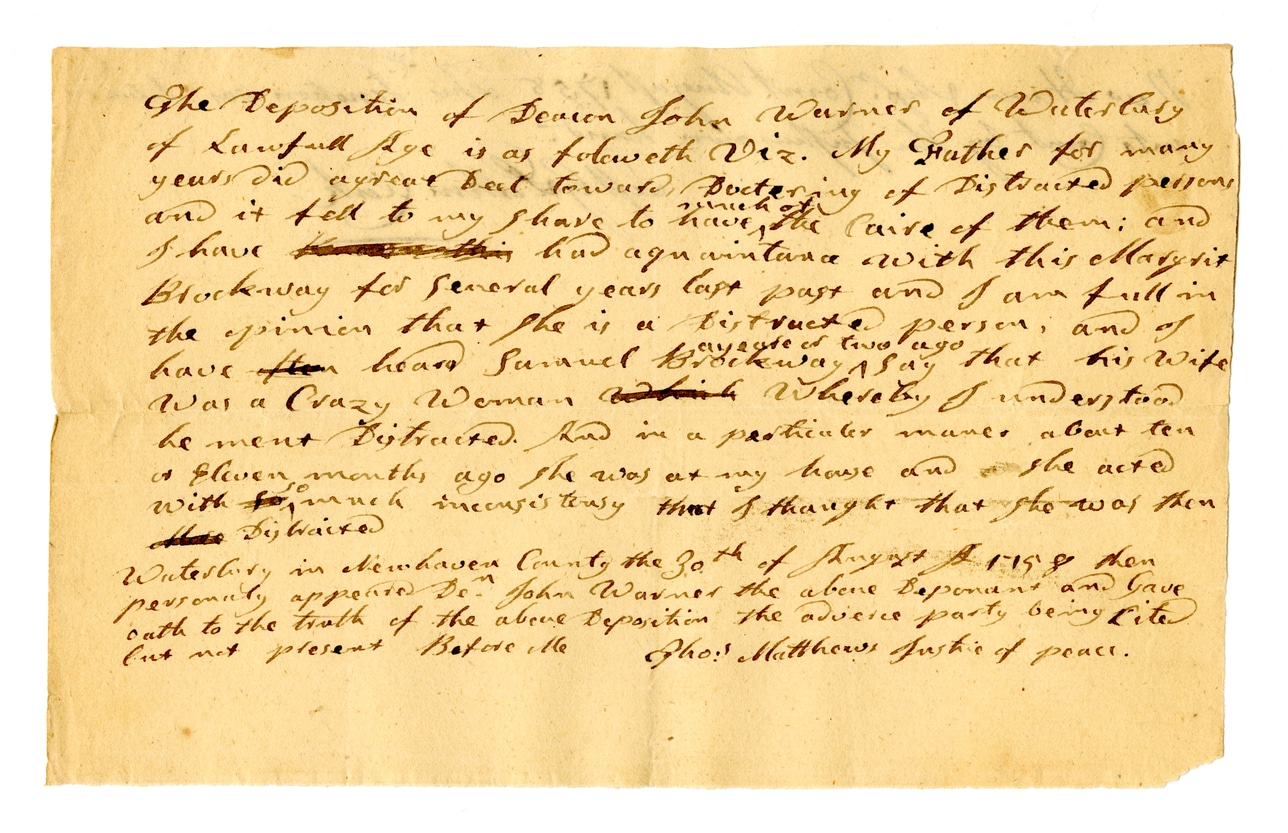 The Deposition of Deacon John Warner of Waterbury
of Lawfull Age is as foloweth Viz. My Father for many
years did agreat Deal toward Doctering of Distracted persons
and it fell to my share to have much of the Caire of them; and
I have had aquaintance with this Margrit
Brockway for Several years last past and I am full in
the opinion that she is a Distracted person, and I
have often heard Samuel Brockway ayeare or two ago Say that his Wife
was a Crazy Woman Which Whereby I understood
he ment Distracted. And in a perticuler maner about ten
or Eleven months ago she was at my house and she acted
with so so much inconsistensy that I thought that she was then
Distracted
Waterbury in Newhaven County the 30th of August AD 1758 then
personaly appeared Den John Warner the above Deponant and Gave
oath to the truth of the above Deposition the adverce party being Cited
but not present Before Me Thos Matthews Justice of peace.